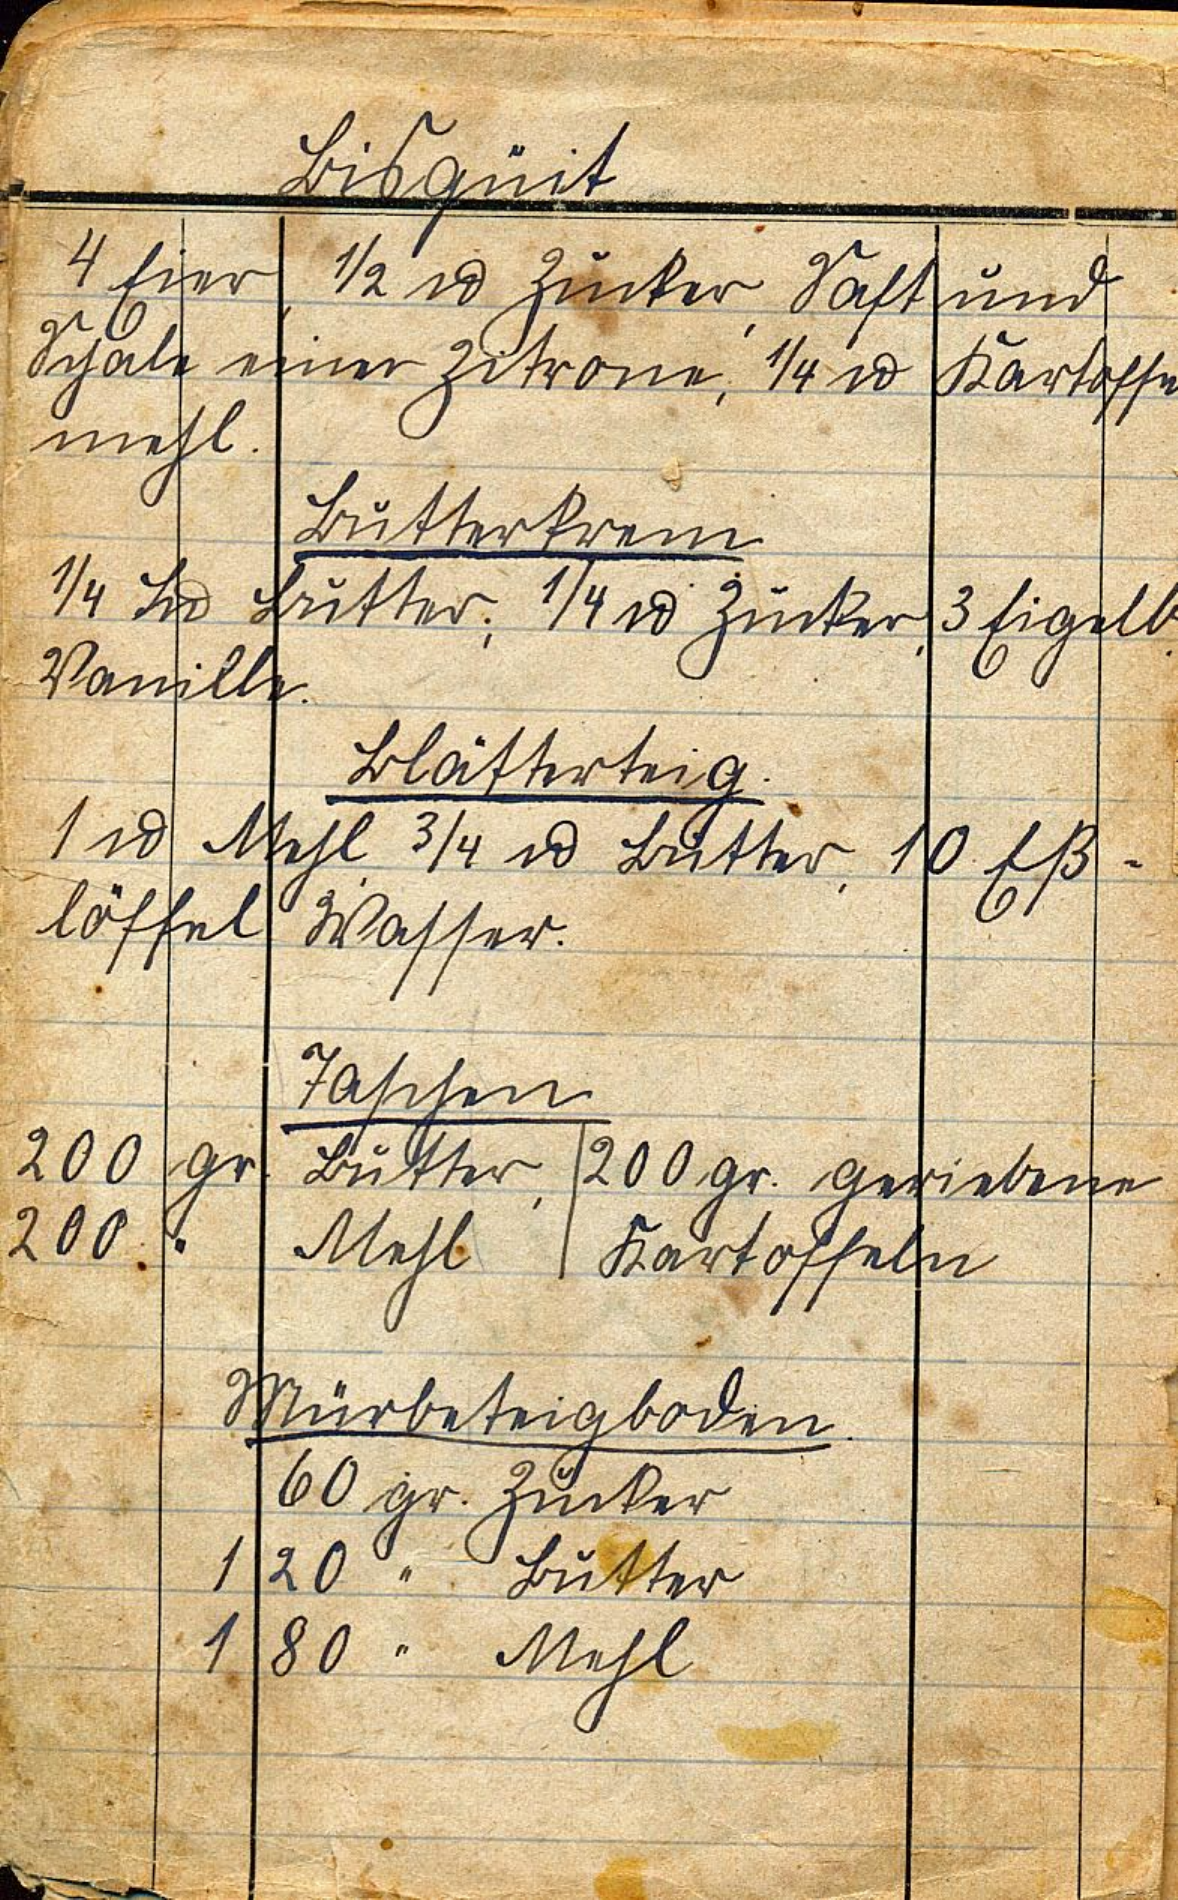 Bisquit
4 Eier, 1/2 ℔ Zucker, Saft und
Schale einer Zitrone, 1/4 ℔ Kartoffe
mehl.
Butterkrem
1/4 ℔ Butter, 1/4 ℔ Zucker, 3 Eigelb,
Vanille.
Blätterteig.
1 ℔ Mehl, 3/4 ℔ Butter, 10 Eß-
löffel Wasser.
Taschen
200 gr. Butter, | 200 gr. geriebene
200 " Mehl | Kartoffeln
Mürbeteigboden.
60 gr. Zucker
120 " Butter
180 " Mehl